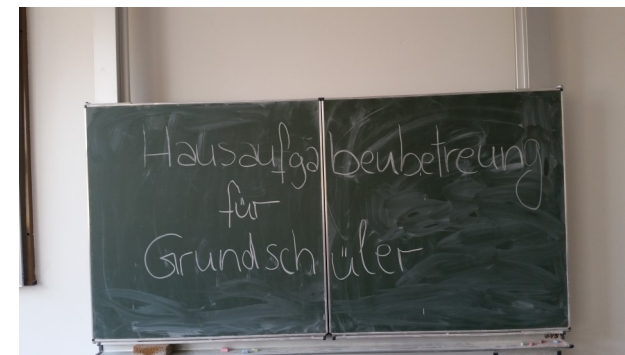 Hausaufgabenbetreung
für
Grundschüler